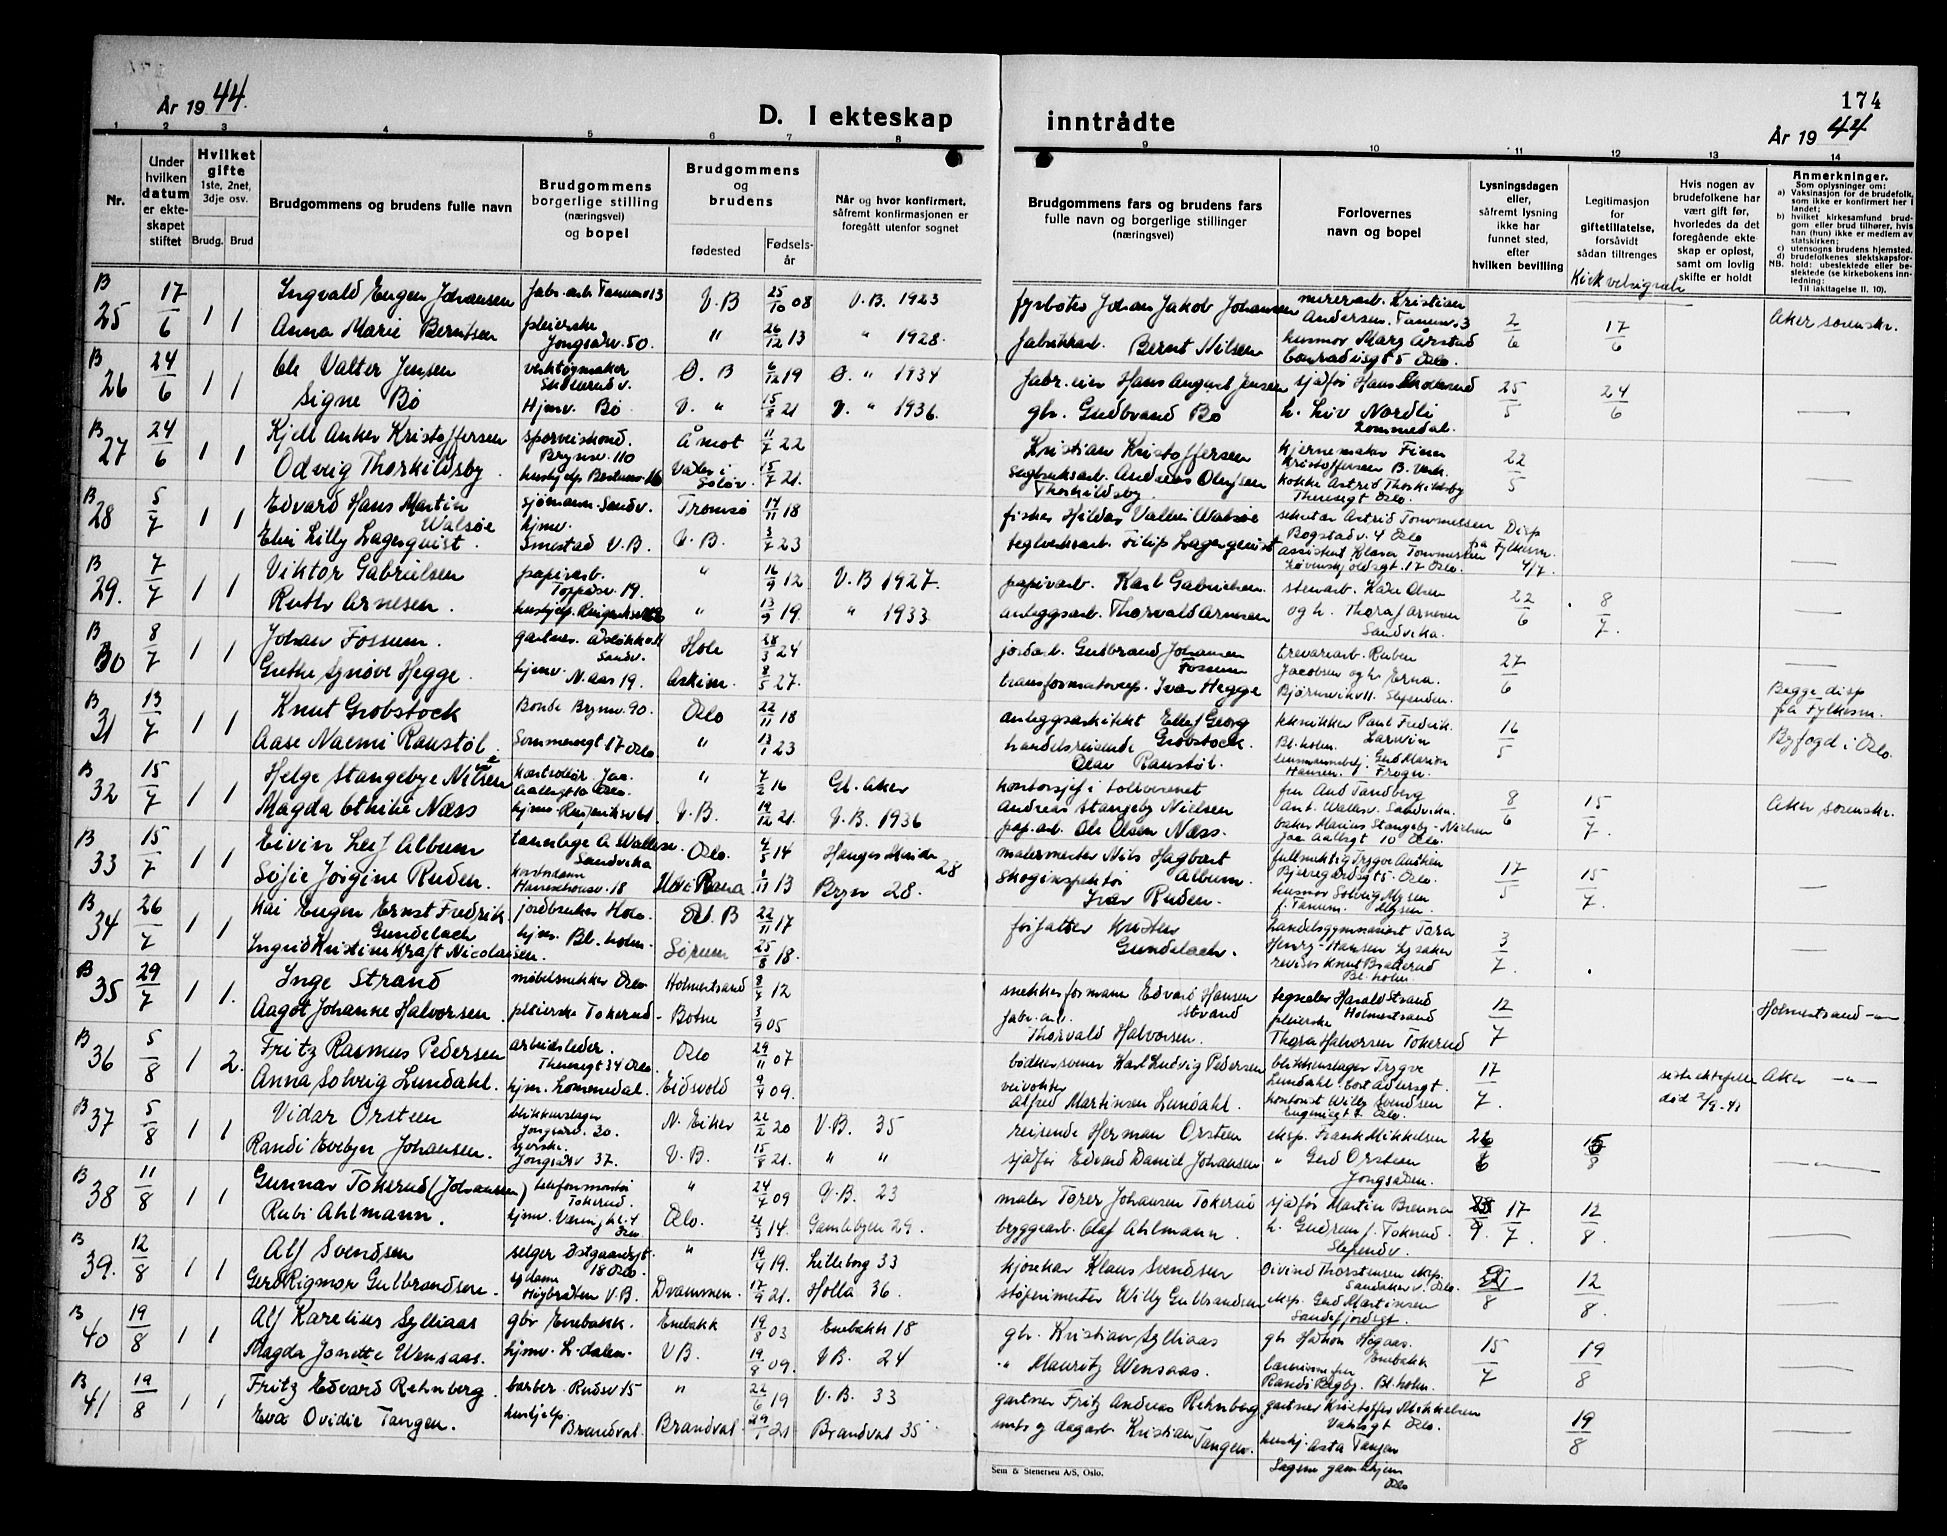 År 1944.
D. I ekteskap
1 2 3 4 5 6 7 8
Nr.
Under hvilken datum er ekteskapet stiftet
Hvilket gifte
1ste, 2net, 3dje osv.
Brudg. Brud
Brudgommens og brudens fulle navn
Brudgommens borgerlige stilling (næringsvei) og bopel
Brudgommens og brudens
fødested
Fødselsår
Når og hvor konfirmert, såfremt konfirmasjonen er foregått utenfor sognet
B 25 17/6 1 1 Ingvald Eugen Johansen fabr.arb. Tanumv 13 V.B 25/10 08 V.B. 1923
Anna Marie Berntsen pleierske Jongsårv. 50. " 26/12 13 " 1928.
B 26 24/6 1 1 Ole Valter Jensen verktøymaker Skollerudv. Ø. B 6/12 19 Ø. " 1934
Signe Bø Hjmv. Bø V. " 15/8 21 V. " 1936.
B 27 24/6 1 1 Kjell Anker Kristoffersen sporveiskond. Brynsv. 110 Åmot 11/7 22
Odveig Thorkildsby. hushjelp Våler i Solør. 15/7 21.
B 28 5/7 1 1 Edvard Hans Martin Walsøe sjømann Sandv. Tromsø 14/11 18
Elvi Lilly Lagerquist. hjmv. Smestad V.B. V.B. 3/7 23
B 29. 7/7 1 1 Viktor Gabrielsen papirarb. Toppåsv. 19. " 16/9 12 V.B 1927.
Ruth Arnesen. hushjelp " 13/9 19 " 1933
B 30 8/7 1 1 Johan Fossum. gartner. Sandv. Hole 28/3 24
Grethe Synøve Hegge. hjmv. N. aas 19. Askim. 8/5 27.
B 31 13/7 1 1 Knut Grobstock Bonde Brynsv. 90. Oslo 22/11 18
Aase Naemi Ranstøl Sommerogt 17 Oslo " 13/1 23
B 32 15/7 1 1 Helge Stangebye Nielsen kontrollør Jac. Aallsgt 10 Oslo. " 7/2 16 Gl. Aker
Magda Othilie Næss hjmv. V.B. 19/12 21. V.B. 1936
B 33 15/7 1 1 Eivin Leif Album tannlege Sandvika Oslo. 4/5 14 28
Sofie Jørgine Ruden. kontordame 18 Rana 1/11 13 Bryn 28.
B 34 26/7 1 1 Kai Eugen Ernst Fredrik Gundelach jordbruker Hole V. B 22/11 17
Ingrid Kristine Kraft Nicolaisen. hjmv. Bl.holm. Sørum 25/8 18.
B 35 29/7 1 1. Inge Strand møbelsnekker Oslo Holmestrand 8/7 12
Aagot Johanne Halvorsen. pleierske Tokerud Botne 3/9 05
B 36 5/8 1 2. Fritz Rasmus Pedersen arbeidsleder. Theresegt 34 Oslo. Oslo 29/11 07
Anna Solveig Lundahl. hjmv. Lommedal. Eidsvold 9/4 09.
B 37 5/8 1 1 Vidar Orsteen blikkenslager Jongsårv. 30. N. Eiker 22/2 20 V.B. 35
Randi Evelyn Johansen. syerske Jongsårv 37. V.B. 15/8 21. " "
B 38 11/8 1 1 Gunnar Tokerud (Johansen) telefonmontør Tokerud. " 24/7 09 V.B. 23
Rubi Ahlmann. hjmv. Oslo. 21/3 14. Gamlebyen 29.
B 39. 12/8 1 1 Alf Svendsen selger Østgaardsgt. 18 Oslo. " 19/4 19. Lilleborg 33
Gerd Rigmor Gulbrandsen. Høybråten V.B. Drammen. 17/9 21. Holla 36.
B 40 19/8 1 1 Alf Karelius Sylliaas gbr Enebakk. Enebakk 19/8 03 Enebakk 18
Magda Jonette Wensaas. hjmv. L.dalen. V B. 19/8 09. V.B. 24
B 41 19/8 1 1 Fritz Edvard Rehnberg. barber. Rudsv 15 " 22/6 19 V.B. 33
Eva Ovidie Tangen. hushjelp. Brandval. Brandval 29/1 21 Brandval 35.
inntrådte
174
År 1944
9 10 11 12 13 14
Brudgommens fars og brudens fars fulle navn og borgerlige stillinger (næringsvei)
Forlovernes navn og bopel
Lysningsdagen eller, såfremt lysning ikke har funnet sted, efter hvilken bevilling
Legitimasjon for giftetillatelse, forsåvidt sådan tiltrenges
Kirk velsignelse
Hvis nogen av brudefolkene har vært gift før, hvorledes da det foregående ekteskap er opløst, samt om lovlig skifte er holdt
Anmerkninger.
Som oplysninger om:
a) Vaksinasjon for de brudefolk, som ikke er konfirmert her i landet;
b) hvilket kirkesamfund brudgom eller brud tilhører, hvis han (hun) ikke er medlem av statskirken;
c) utensogns brudens hjemsted.
d) brudefolkenes slektskapsforhold: ubeslektede eller beslektede (se kirkebokens innledning:
NB. Til iakttagelse II. 10).
fyrbøter Johan Jakob Johansen murerarb. Kristian Andersen. Tanumv. 3 2/6 17/6 Aker sorenskr.
fabrikkarb. Bernt Nilsen husmor Marg Arstad Conradisgt 5 Oslo.
fabr.eier Hans August Jensen sjåfør Hans Skollerud 25/5 24/6 —
gbr. Gudbrand Bø h. Liv Nordli Lommedal.
Kristian Kristoffersen kjernemaker Finn Kristoffersen B. Verk. 22/5 —
sagbruksarb. Andreas Olufsen Thorkildsby. kokke Astrid Thorkildsby Theresegt Oslo.
fisker Hildar Valdei Walsøe sekretær Astrid Tommelsen Bogstadv. 4 Oslo Disp fra Fylkesm. 4/7. —
teglverksarb. Filip Lagerquist assistent Klara Tommersen Løvenskjoldsgt. 17 Oslo.
papirarb. Karl Gabrielsen stenarb. Kåre Olsen 22/6 8/7. —
anleggsarb. Thorvald Arnesen og h. Thora Arnesen Sandvika.
jordarb. Gulbrand Johansen Fossum trevarearb. Ruben Jacobsen og h. Erna. 27/6 —
transformatorvap. Ivar Hegge Bjørnsvik 11. Slependen.
anleggsarkitekt Ellef Georg Grobstock. tekniker Paul Fredrik Larwin Bl.holm. 16/5 Begge disp fra Fylkesm. Byfogd i Oslo.
handelsreisende Olav Ranstøl. Gerd Marion Hansen. Frogn.
kontorsjef i tollvesenet Andreas Stangeby Nielsen fru Aud Tandberg Ant. Wallesv. Sandvika. 8/6 15/7. Aker sorenskr.
pap.arb. Ole Olsen Næss. baker Marius Stangeby-Nielsen Jac Aallsgt 10 Oslo.
malermester Nils Hagbart Album. fullmektig Trygve Bjerregårdsgt 5. Oslo. 17/5 15/7. —
skoginspektør Ivar Ruden. husmor Solveig Mysen f. Tanum. Mysen.
forfatter Kristen Gundelach. handelsgymnasiast Tora Henry-Hansen Lysaker 3/7. —
revisor Knut Braterud Bl.holm.
snekkerformann Edvard Hansen Strand tegneler Harald Strand Holmestrand 12/7 Holmestrand —"—
fabr.arb. Thorvald Halvorsen. pleierske Thora Halvorsen Tokerud
bødkersvenn Karl Ludvig Pedersen blikkenslager Trygve Lundahl. Cort Adlersgt. 17/7. siste ektefelle død 2/9-41 Aker —"—
veivokter Alfred Martinsen Lundahl. kontorist Willy Svendsen Eugeniegt 7. Oslo.
reisende Herman Orsteen eksp. Frank Mikkelsen 26/6 15/8 —"—
sjåfør Edvard Daniel Johansen " Gerd Orsteen Jongsåsen.
maler Torer Johansen Tokerud sjåfør Martin Brenna 17/7. 12/8. —
byggearb. Olaf Ahlmann. h. Gudrun f. Tokerud. Slependv.
kjørekar Klaus Svendsen Øivind Thorstensen eksp. Sandaker v. Oslo. 12/8. —
støperimester Willy Gulbrandsen eksp. Gerd Martinsen Sandefjordgt.
gbr. Kristian Sylliaas gbr Håkon Høgaas. Enebakk 15/7 19/8 —
" Mauritz Wensaas. lærerinne frøken Randi Bagby. Bl.holm.
gartner Fritz Andreas Rehnberg gartner Kristoffer Mikkelsen Vahlsgt Oslo. 19/8 —
smbr og dagarb Kristian Tangen. hushj. Asta Tangen Sagene gamlehjem Oslo
Sem & Stenersen A/S, Oslo.